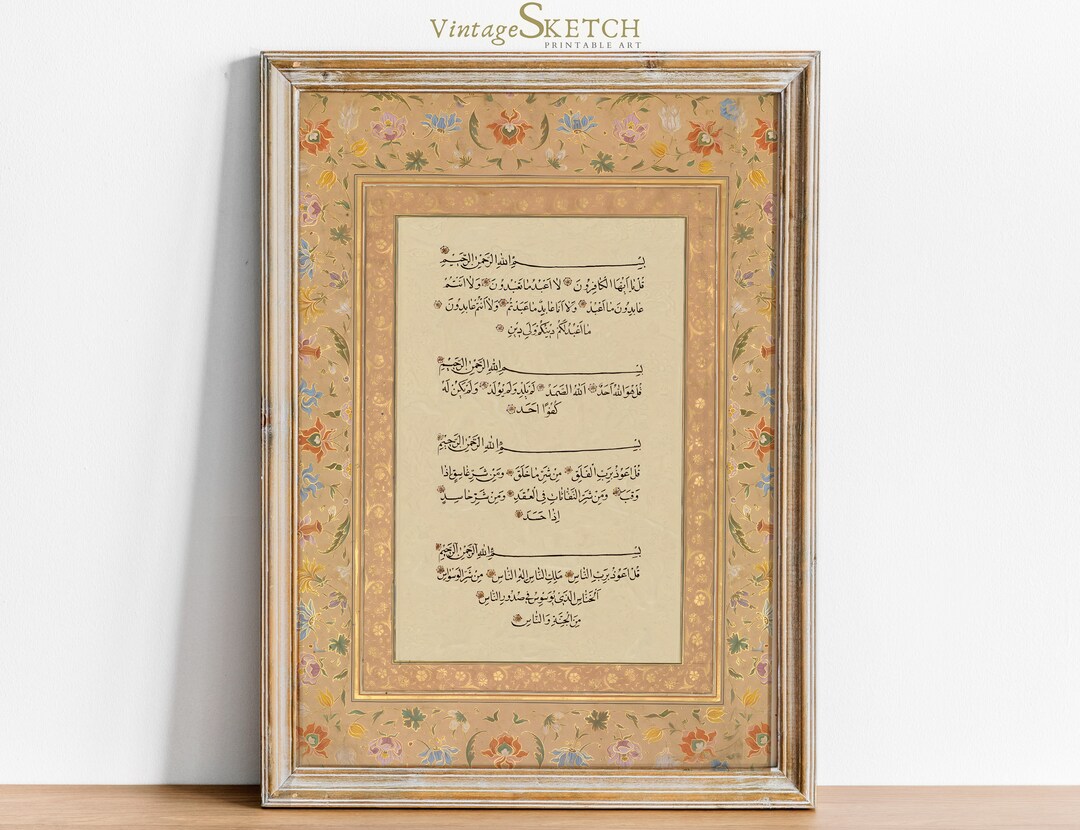 VintageSKETCH
PRINTABLE ART
بسم الله الرحمن الرحيم
قل يا ايها الكافرون لا اعبد ما تعبدون ولا انتم
عابدون ما اعبد ولا انا عابد ما عبدتم ولا انتم عابدون
ما اعبد لكم دينكم ولي دين
بسم الله الرحمن الرحيم
قل هو الله احد الله الصمد لم يلد ولم يولد ولم يكن له
كفوا احد
بسم الله الرحمن الرحيم
قل اعوذ برب الفلق من شر ما خلق ومن شر غاسق اذا
وقب ومن شر النفاثات في العقد ومن شر حاسد
اذا حسد
بسم الله الرحمن الرحيم
قل اعوذ برب الناس ملك الناس اله الناس من شر الوسواس
الخناس الذي يوسوس في صدور الناس
من الجنة والناس